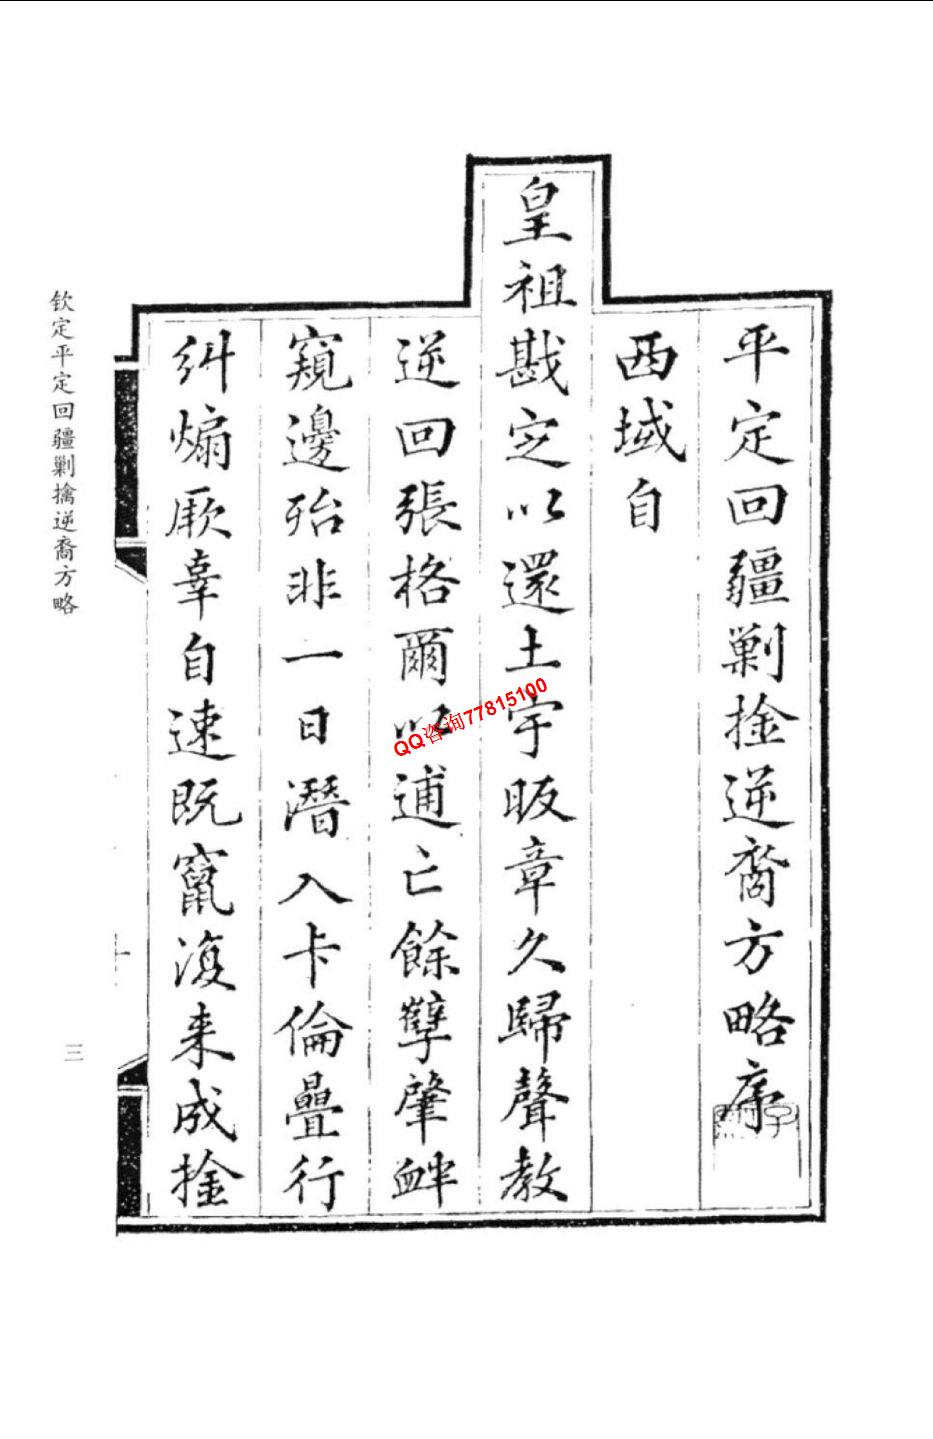 平定回疆剿捦逆裔方略序
西域自
皇祖戡定以還土宇昄章久歸聲教
逆回張格爾以逋亡餘孽肇衅
窺邊殆非一日潛入卡倫疊行
糾煽厥辜自速既竄復来成捦
欽定平定回疆剿擒逆裔方略
三
QQ咨询77815100